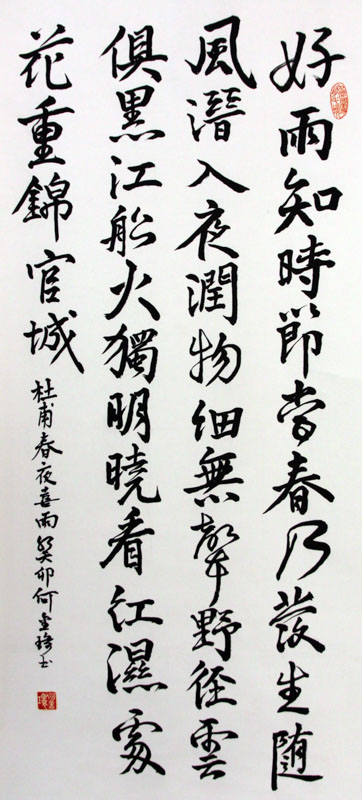 好雨知時節當春乃發生随
風潛入夜潤物細無聲野径雲
俱黑江船火獨明曉看红濕處
花重錦官城
杜甫春夜喜雨癸卯何金琦书